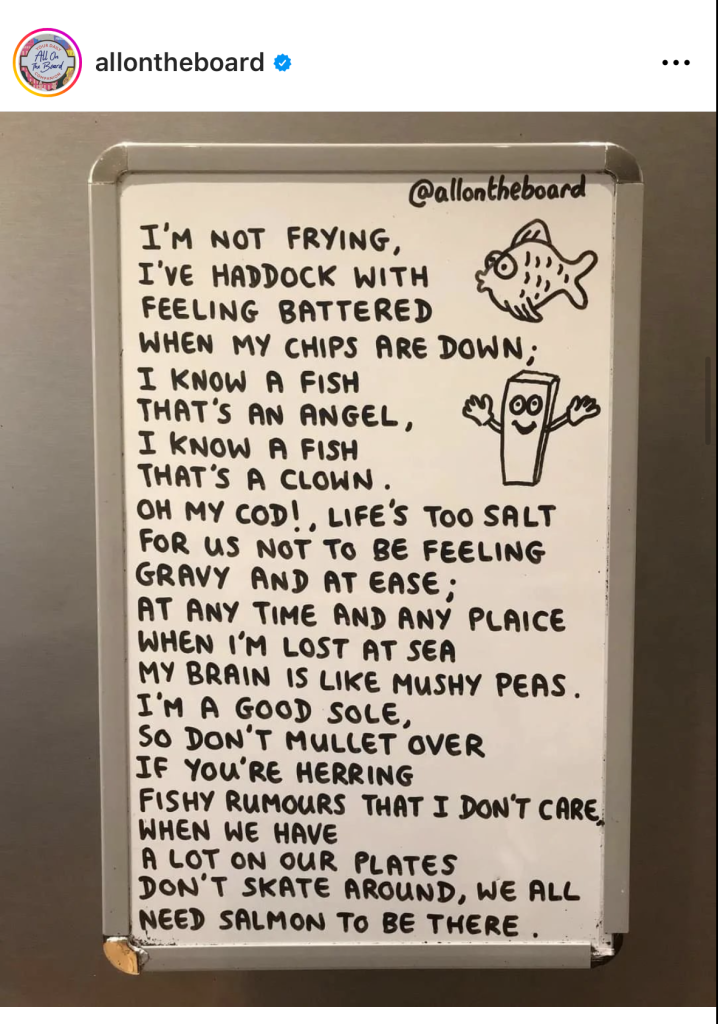 YOUR DAILY
All On
The Board
COMPANION
allontheboard
@allontheboard
I'M NOT FRYING,
I'VE HADDOCK WITH
FEELING BATTERED
WHEN MY CHIPS ARE DOWN;
I KNOW A FISH
THAT'S AN ANGEL,
I KNOW A FISH
THAT'S A CLOWN.
OH MY COD!, LIFE'S TOO SALT
FOR US NOT TO BE FEELING
GRAVY AND AT EASE;
AT ANY TIME AND ANY PLAICE
WHEN I'M LOST AT SEA
MY BRAIN IS LIKE MUSHY PEAS.
I'M A GOOD SOLE,
SO DON'T MULLET OVER
IF YOU'RE HERRING
FISHY RUMOURS THAT I DON'T CARE,
WHEN WE HAVE
A LOT ON OUR PLATES
DON'T SKATE AROUND, WE ALL
NEED SALMON TO BE THERE.